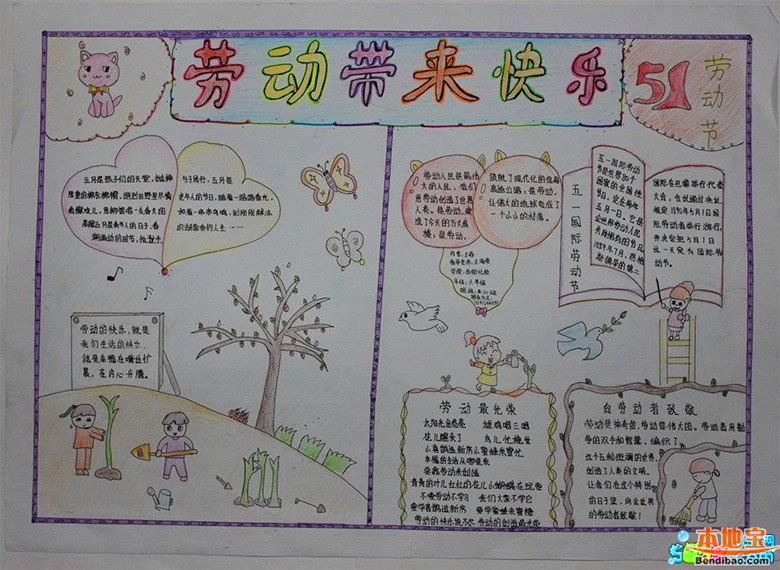 劳动带来快乐
51
劳动节
五月是孩子们的天堂，
与子同行，五月是
劳动人民是最伟
大的人民，他们
用劳动创造了世界
人类。是劳动，建
成了今天的万丈高
楼；是劳动，
筑就了现代化的信息
高速公路，是劳动，
让偌大的地球变成了
一个小小的村落。
五一国际劳动节
五一国际劳动
节是世界80个
国家的全国性
节日，定在每年
五月一日。它是
全世界劳动人民
共同拥有的节日
1889年7月，
国际在巴黎举行代表
大会，会议通过决议
规定1890年5月1日国
际劳动者举行游行，
并决定把5月1日
这一天定为国际劳
动节。
劳动的快乐，就是
我们生活的快乐，
就是幸福在嘴边扩
展，在内心升腾。
劳动最光荣
太阳光金亮亮
雄鸡唱三唱
花儿醒来了
鸟儿忙梳妆
小喜鹊造新房小蜜蜂采蜜忙
幸福的生活从哪里来
要靠劳动来创造
青青的叶儿红红的花儿小蝴蝶在玩耍
不爱劳动不学习 我们大家不学它
要学喜鹊造新房 要学蜜蜂来采蜜糖
劳动的快乐说不尽 劳动的创造最光荣
向劳动者致敬
劳动是神奇的，劳动是伟大的。劳动者用勤
劳的双手和智慧，编织了
这个五彩斑斓的世界，
创造了人类的文明。
让我们在这个特别
的日子里，向全世界
的劳动者致敬！
本地宝
Bendibao.com